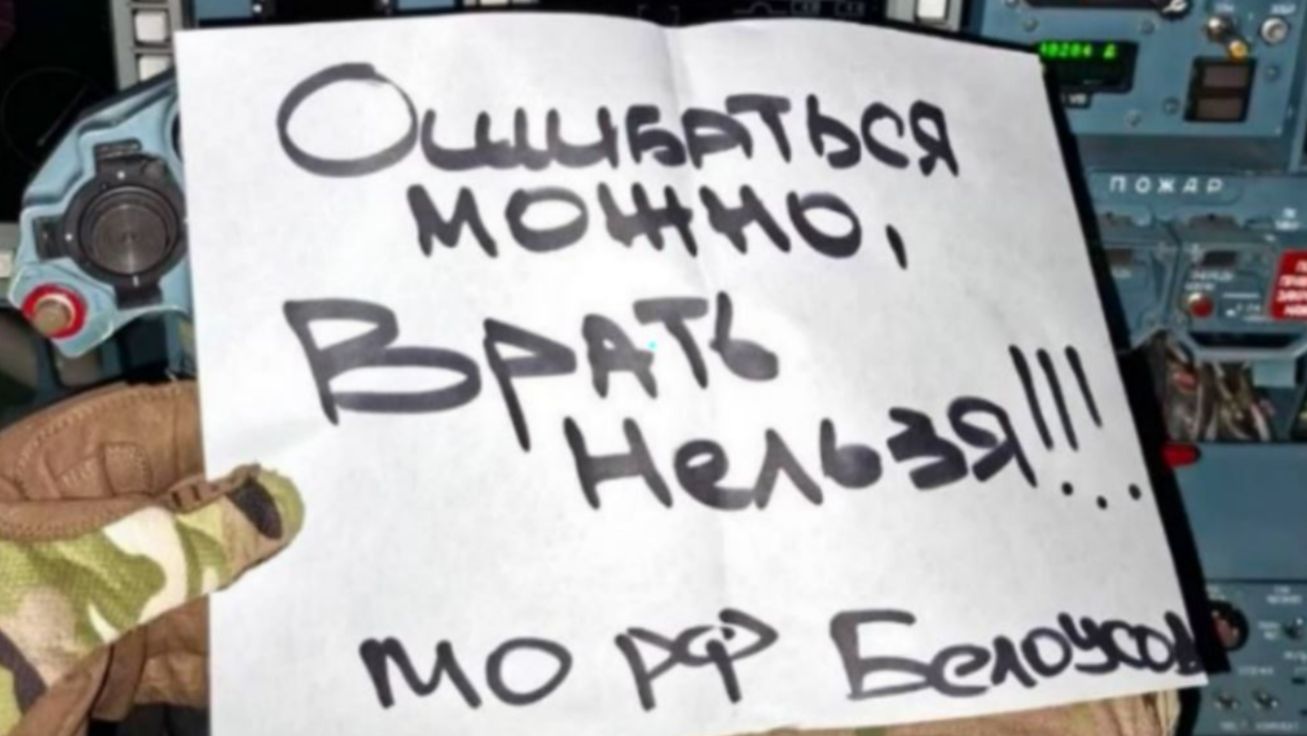 Ошибаться
можно,
Врать
Нельзя!!!
МО РФ Белоусов
ПОЖАР